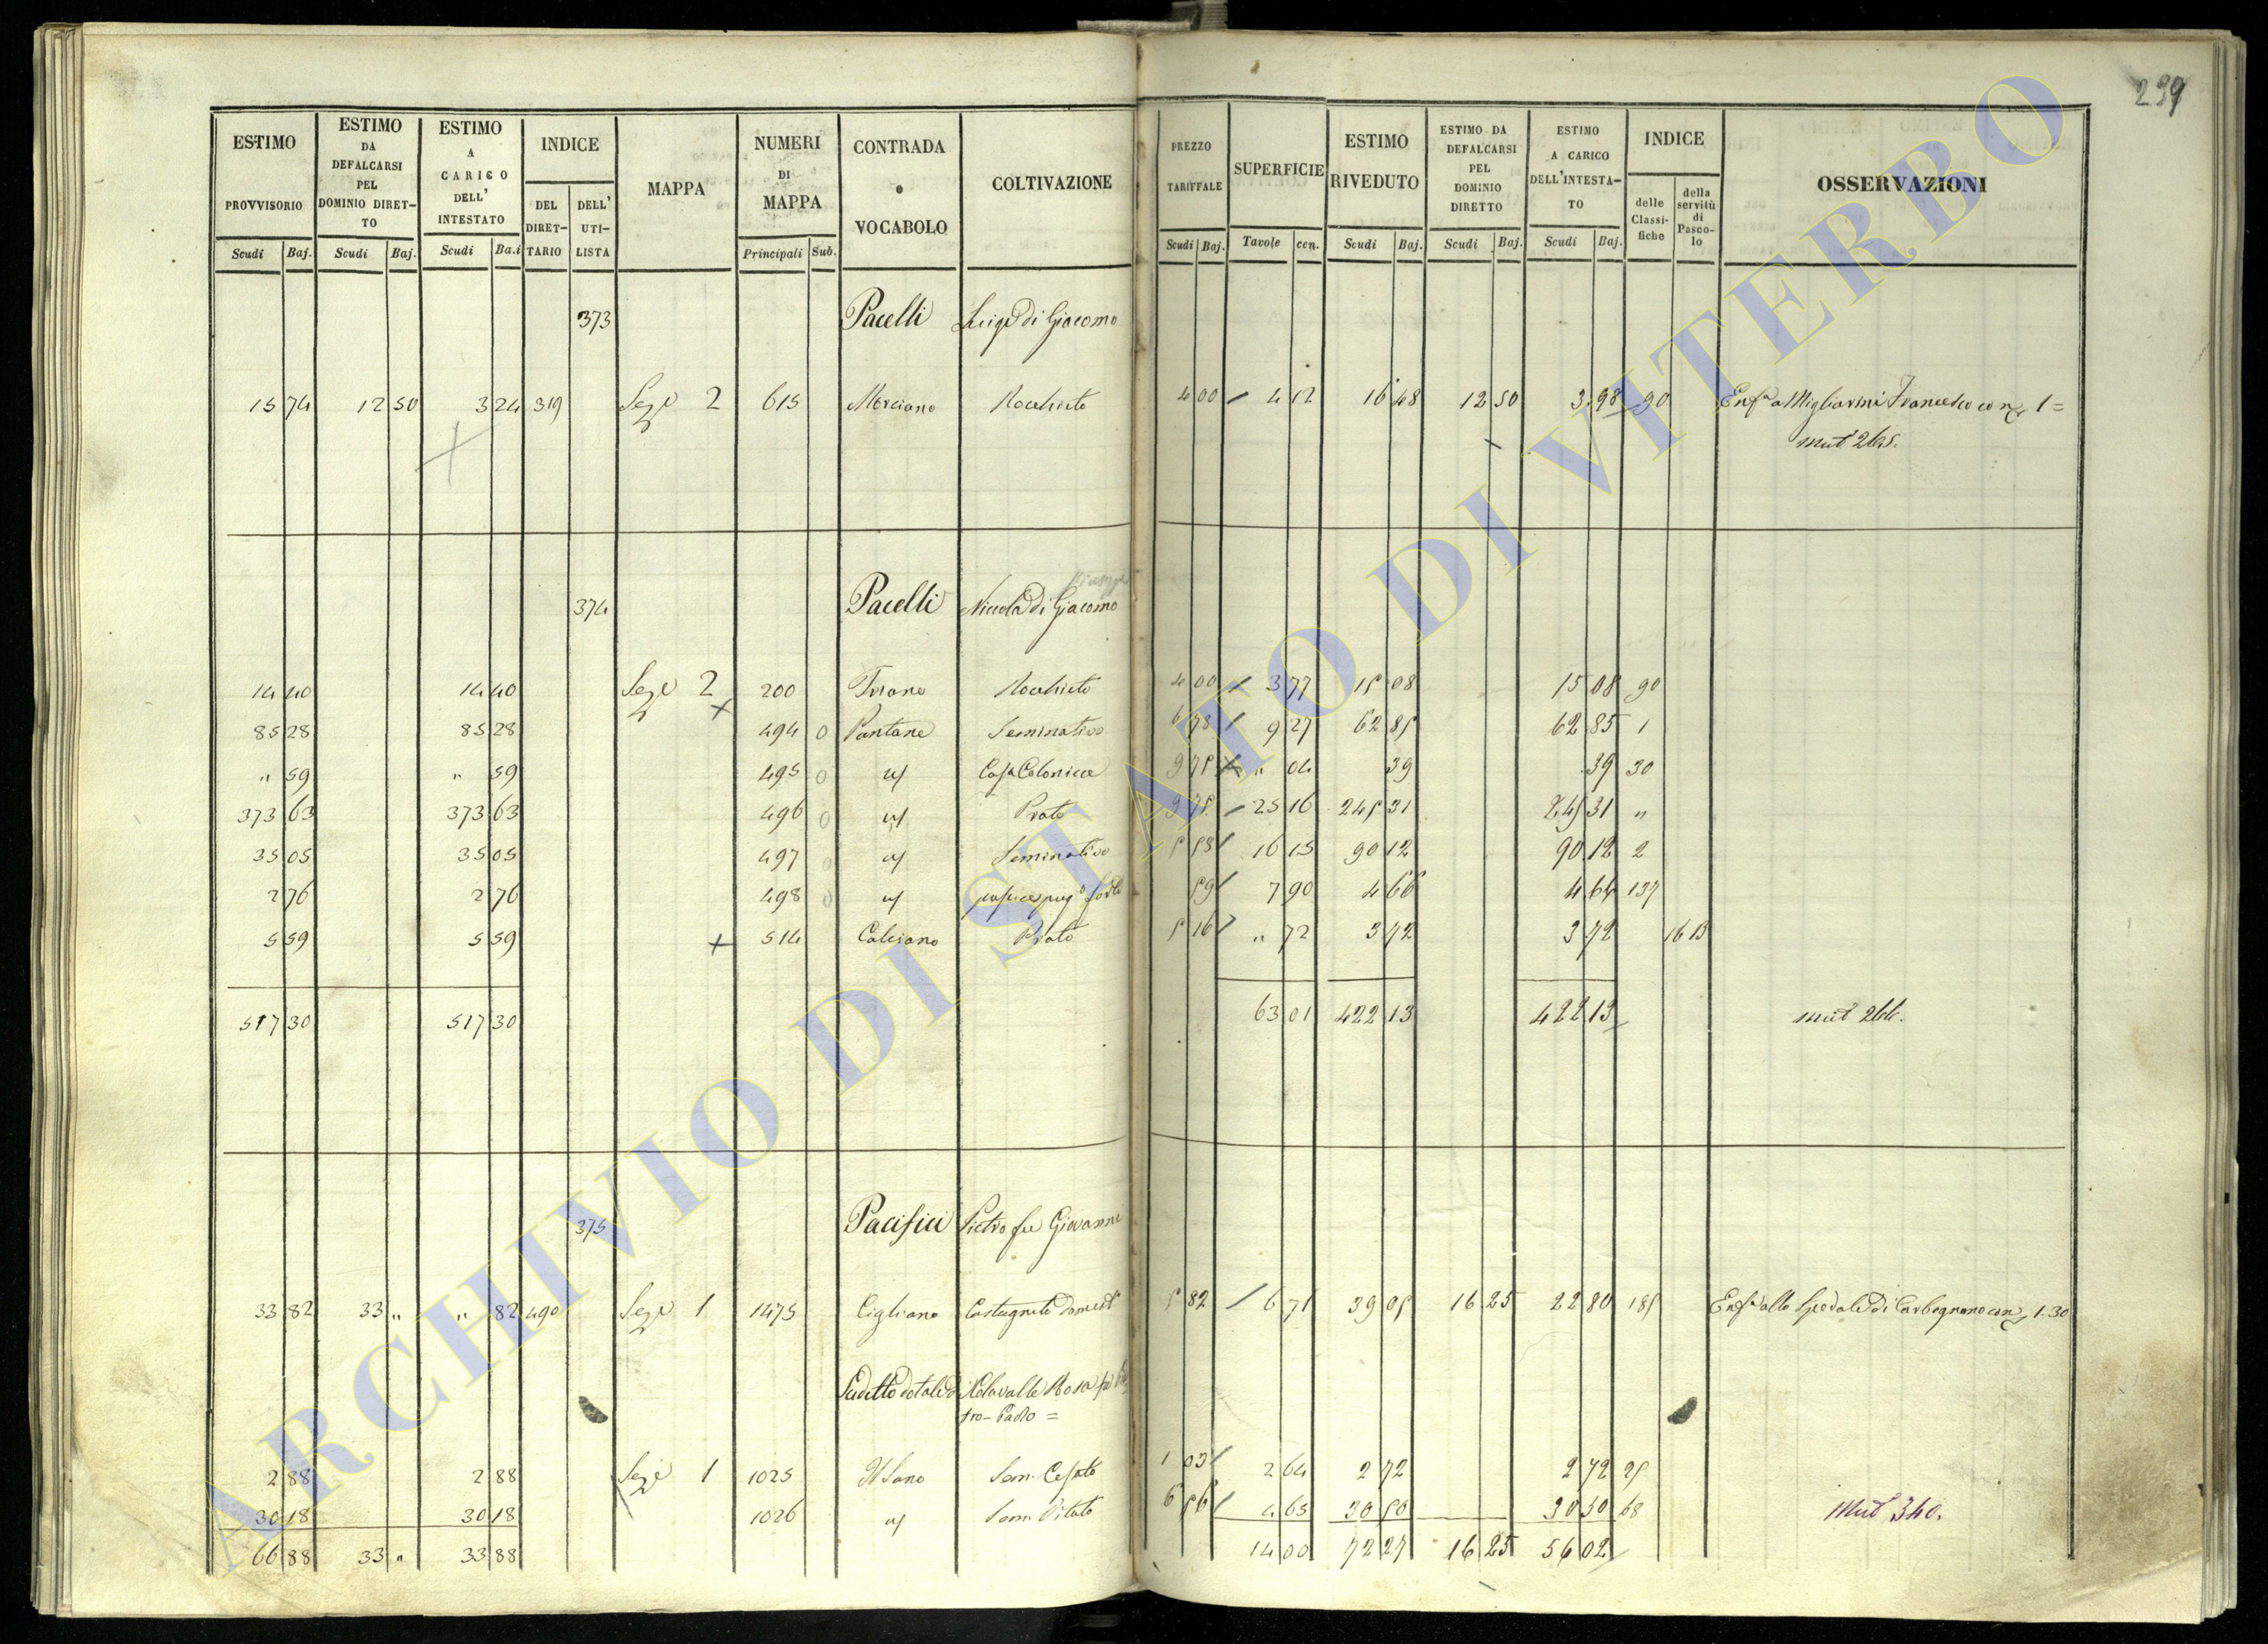 239
ESTIMO PROVVISORIO Scudi Baj.
ESTIMO DA DEFALCARSI PEL DOMINIO DIRETTO Scudi Baj.
ESTIMO A CARICO DELL' INTESTATO Scudi Ba.i
INDICE DEL DIRETTARIO DELL' UTILISTA
MAPPA
NUMERI DI MAPPA Principali Sub.
CONTRADA o VOCABOLO
COLTIVAZIONE
PREZZO TARIFFALE Scudi Baj.
SUPERFICIE Tavole cen.
ESTIMO RIVEDUTO Scudi Baj.
ESTIMO DA DEFALCARSI PEL DOMINIO DIRETTO Scudi Baj.
ESTIMO A CARICO DELL'INTESTATO Scudi Baj.
INDICE delle Classifiche della servitù di Pascolo
OSSERVAZIONI
373 Pacelli Luigi di Giacomo
15 74 12 50 3 24 319 Sez.e 2 615 Morciano Rocchieto 4 00 4 12 16 48 12 50 3 98 90 Enf.a a Migliarini Francesco con 1 =
mut 265.
374 Pacelli Nicola di Giacomo
14 40 14 40 Sez.e 2 200 Rocchieto 4 00 3 77 15 08 15 08 90
85 28 85 28 494 0 Pantane Seminativo 6 78 9 27 62 85 62 85 1
" 59 " 59 495 0 " Casa Colonica 9 75 " 04 39 39 30
373 63 373 63 496 0 " Prato 9 75 25 16 245 31 245 31 "
35 05 35 05 497 0 " Seminativo 5 58 16 15 90 12 90 12 2
2 76 2 76 498 0 " 59 7 90 4 66 4 66 137
5 59 5 59 514 Calciano Prato 5 16 " 72 3 72 3 72 16 13
517 30 517 30 63 01 422 13 422 13 mut 266.
375 Pacifici Pietro fu Giovanni
33 82 33 " " 82 490 Sez.e 1 1475 Cigliano Castagneto domest. 5 82 6 71 39 05 16 25 22 80 185 Enf.a allo Spedale di Carbognano con 1.30
Sudetto dotale di Rosa fu
tro-Paolo =
2 88 2 88 Sez.e 1 1025 Sem. Cesato 1 03 2 64 2 72 2 72 25
30 18 30 18 1026 " Sem. Vitato 6 56 4 65 30 50 30 50 68 Mut 340.
66 88 33 " 33 88 14 00 72 27 16 25 56 02
ARCHIVIO DI STATO DI VITERBO